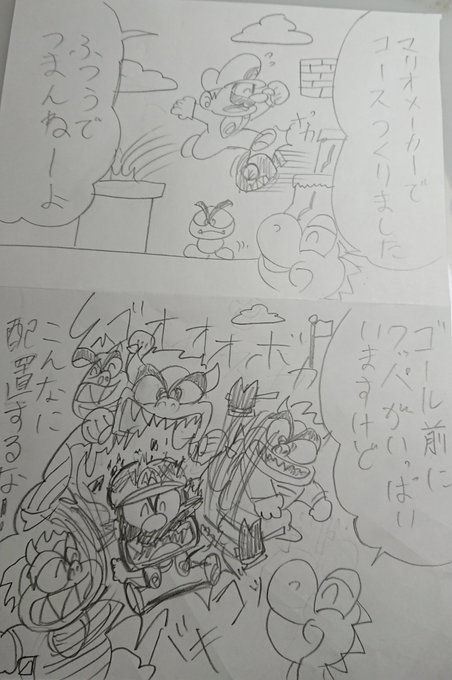 マリオメーカーで
コースつくりました
ふつうで
つまんねーよ
ボカ
ゴール前に
クッパがいっぱい
いますけど
ゴオオオ
ボカ
こんなに
配置するな!
バキ